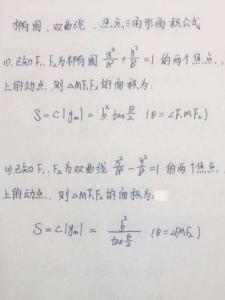 椭圆、双曲线、焦点三角形面积公式
(1).已知F₁、F₂为椭圆 x²/a² + y²/b² = 1 的两个焦点,
上的动点,则△MF₁F₂的面积为:
S = c|yₘ| = b² tan θ/2 (θ=∠F₁MF₂)
(2).已知F₁、F₂为双曲线 x²/a² - y²/b² = 1 的两个焦点,
上的动点,则△MF₁F₂的面积为:
S = c|yₘ| = b²/tan θ/2 (θ=∠F₁MF₂)